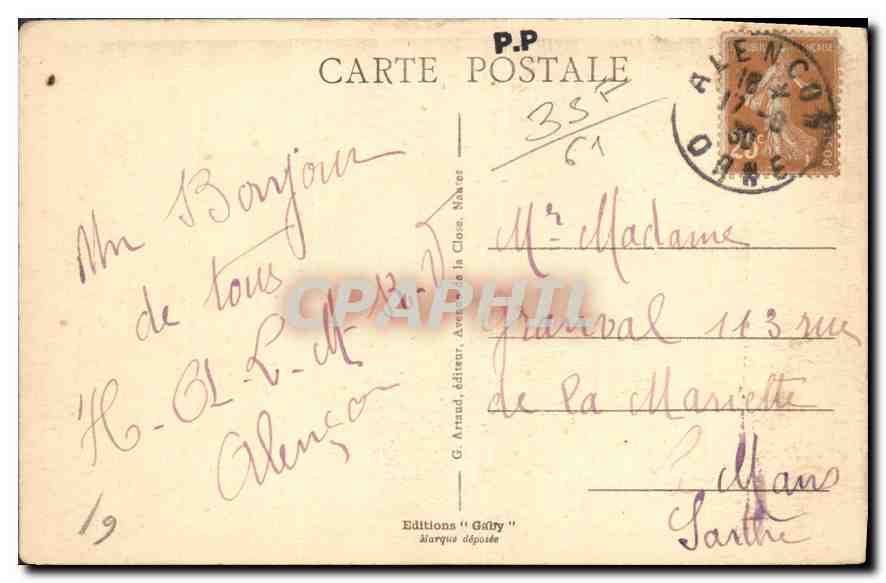 P.P
CARTE POSTALE
ALENÇON
ORNE
30
25c
Un Bonjour
de tous
H-A-L-M-B-D
Alençon
G. Artaud, éditeur, Avenue de la Close, Nantes
61
Mr Madame
Granval 113 rue
de la Mariette
Mans
Sarthe
CPAPHIL
Editions "Gaby"
Marque déposée
19